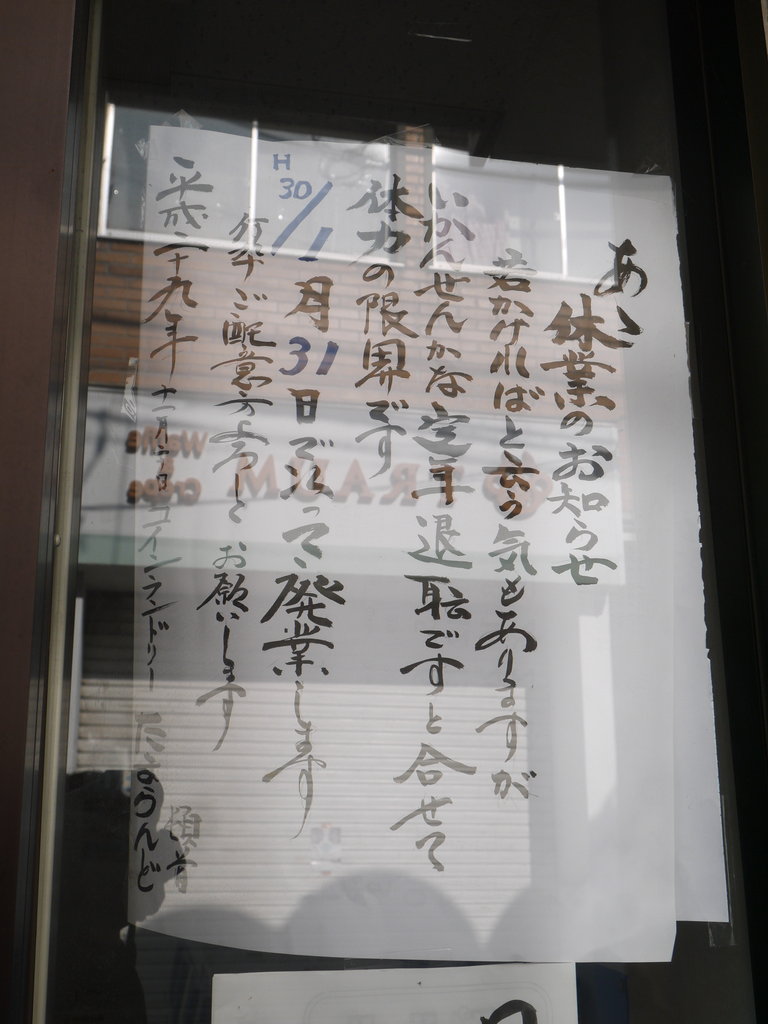 あゝ
休業のお知らせ
若かければと云う気もありますが
いかんせんかな定年退職ですと合せて
体力の限界です
H30/1月31日で以って廃業します
何卒ご配意方よろしくお願いします
平成二十九年
コインランドリー
頓首
Waffle & Crepe
TRAUM